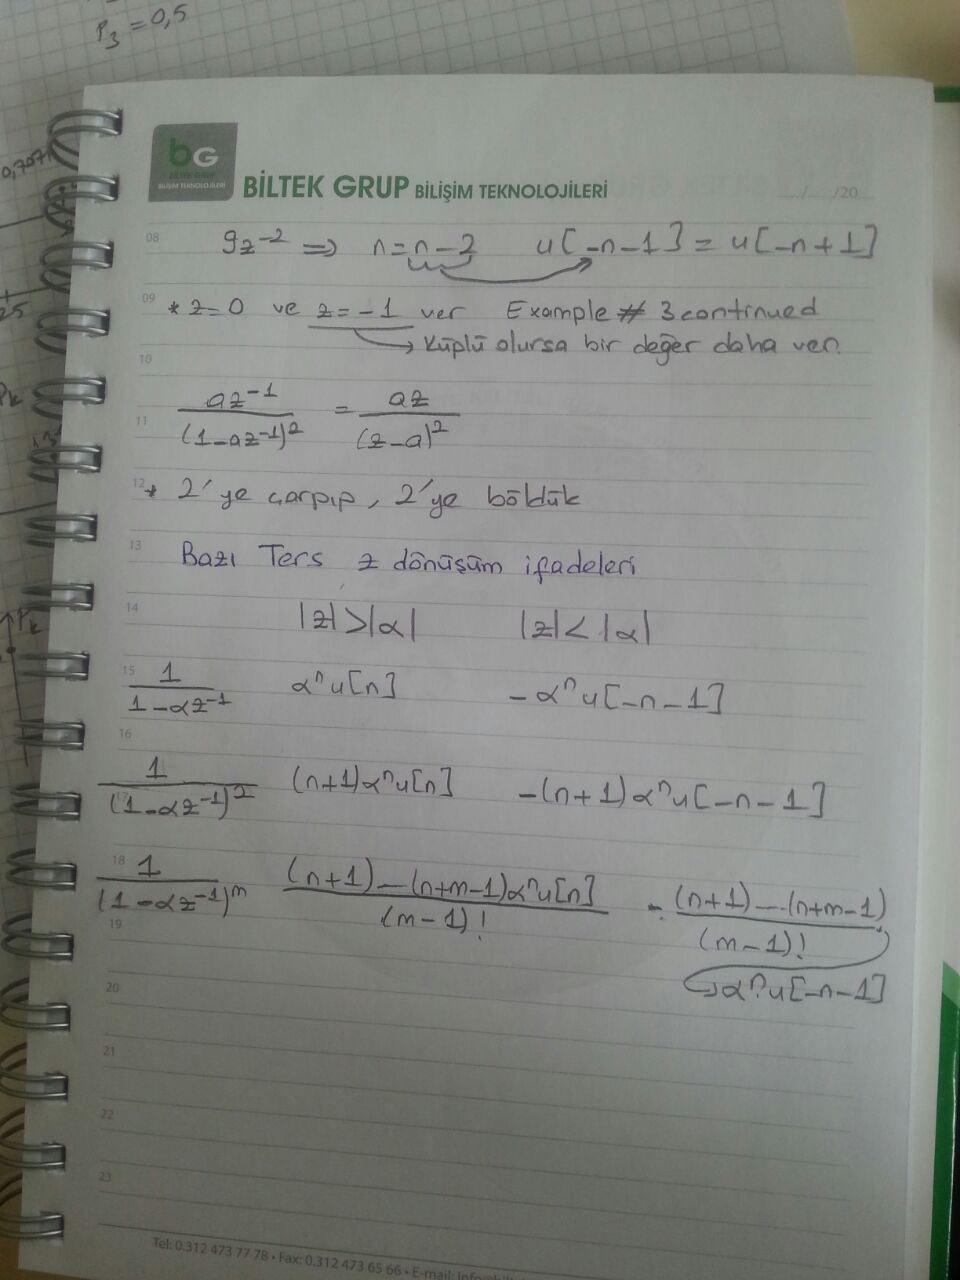 P₃ = 0,5
0,707
25
Pk
bG
BİLTEK GRUP
BİLİŞİM TEKNOLOJİLERİ
BİLTEK GRUP BİLİŞİM TEKNOLOJİLERİ
/ /20
08 9z⁻² => n=n-2 u[-n-1] = u[-n+1]
09 * z=0 ve z=-1 ver Example # 3 continued
Küplü olursa bir değer daha ver.
10
11 az⁻¹/(1-az⁻¹)² = az/(z-a)²
12 * 2'ye çarpıp, 2'ye böldük
13 Bazı Ters z dönüşüm ifadeleri
14 |z|>|α| |z|<|α|
15 1/(1-αz⁻¹) αⁿu[n] -αⁿu[-n-1]
16
17 1/(1-αz⁻¹)² (n+1)αⁿu[n] -(n+1)αⁿu[-n-1]
18 1/(1-αz⁻¹)ᵐ (n+1)---(n+m-1)αⁿu[n]/(m-1)! - (n+1)---(n+m-1)/(m-1)!
19
αⁿu[-n-1]
20
21
22
23
Tel: 0.312 473 77 78 • Fax: 0.312 473 65 66 • E-mail: